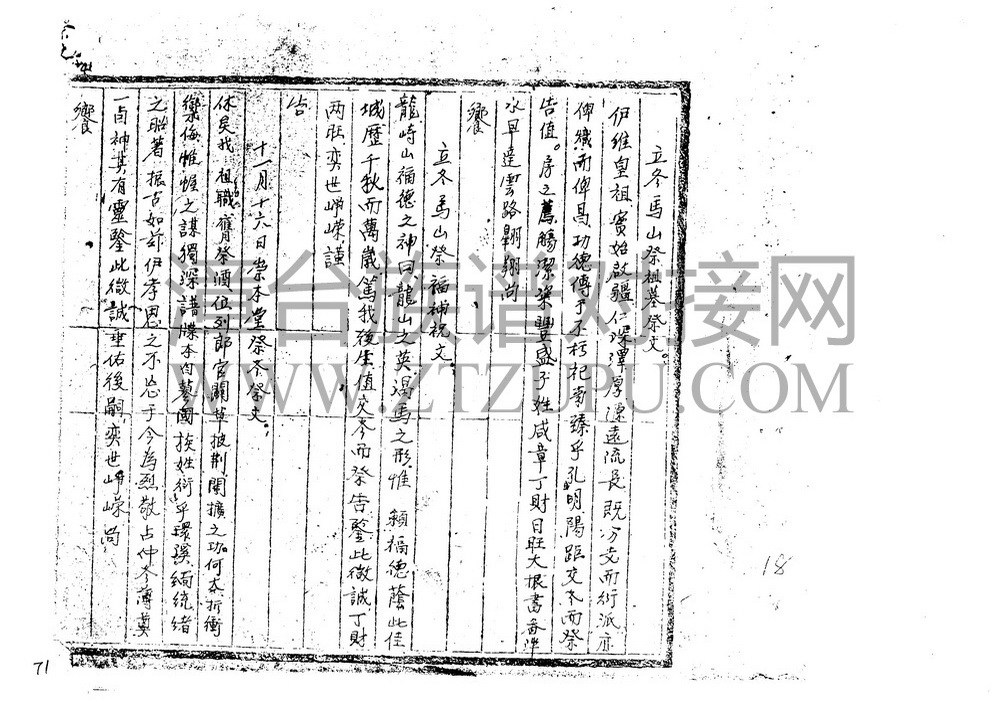 立冬馬山祭祖墓祭文。
伊維皇祖賓始啟疆仁深澤厚源遠流長既分支而衍派亦
俾熾而俾昌功德傳乎不朽祀事臻乎孔明陽距交冬而祭
告值。房之薦觴潔粢豐盛子姓咸章丁財日旺大振書香
水早達雲路翱翔尚
饗
立冬馬山祭福神祝文。
龍崎山福德之神曰龍山之英渴馬之形惟 賴福德蔭此佳
城歷千秋而萬歲篤我後生值交冬而祭告鑒此微誠丁財
两旺奕世崢嶸謹
告
十一月十六日崇本堂祭冬祭文。
休矣我 祖職膺祭酒位列郎官闢草披荆開擴之功。何 折衝
禦侮帷幄之謀獨深譜牒本自蓼國族姓衍乎環溪緬統緒
之昭著振古如茲伊孝思之不忘于今為烈敬占仲冬薄奠
一卣神其有靈鑒此微誠垂佑後嗣奕世崢嶸尚
饗
漳台族谱对接网
WWW.ZTZUPU.COM
18
71